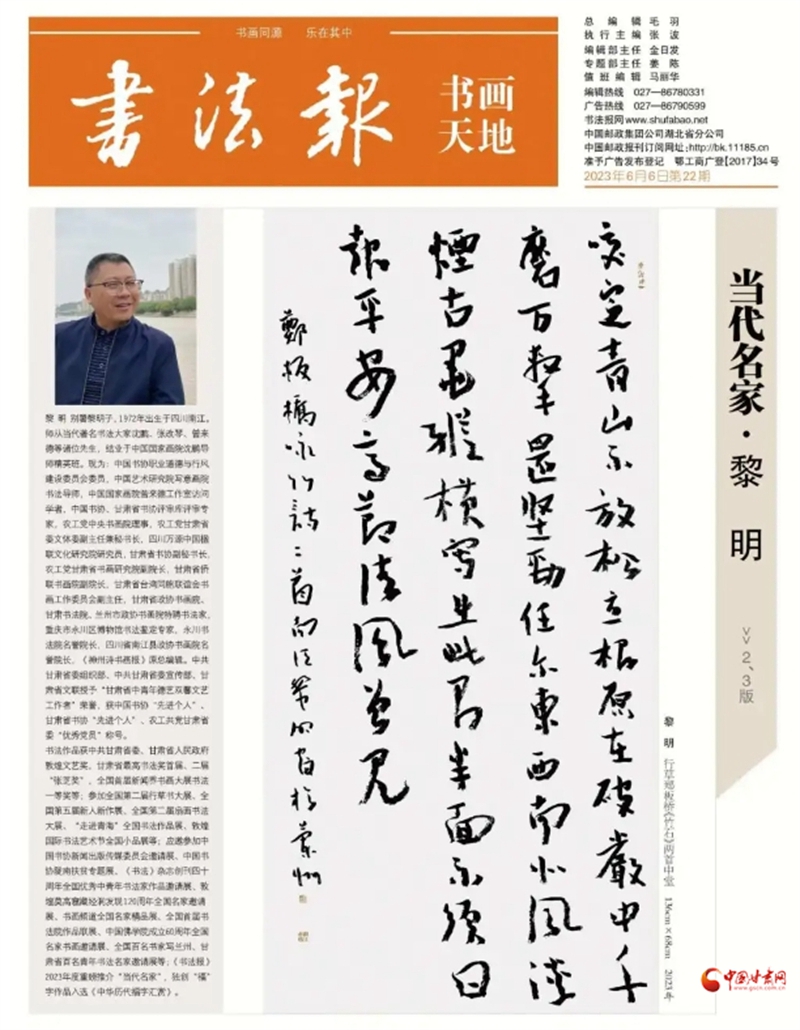 书画同源 乐在其中
书法报
书画
天地
总编辑 毛羽
执行主编 张波
编辑部主任 金日发
专题部主任 姜陈
值班编辑 马丽华
编辑热线 027—86780331
广告热线 027—86790599
书法报网www.shufabao.net
中国邮政集团公司湖北省分公司
中国邮政报刊订阅网址:http://bk.11185.cn
准予广告发布登记 鄂工商广登[2017]34号
2023年6月6日第22期
当代名家·黎明
>> 2、3版
咬定青山不放松立根原在破岩中千
磨万击还坚劲任尔东西南北风淡
烟古墨纵横写出此君半面不须日
报平安高节清风曾见
郑板桥咏竹诗二首
黎明 行草郑板桥《竹石》两首中堂 136cm×68cm 2023年
黎明 别署黎明子,1972年出生于四川南江。
师从当代著名书法大家沈鹏、张改琴、曾来
德等诸位先生,结业于中国国家画院沈鹏导
师精英班。现为:中国书协职业道德与行风
建设委员会委员,中国艺术研究院写意画院
书法导师,中国国家画院曾来德工作室访问
学者,中国书协、甘肃省书协评审库评审专
家,农工党中央书画院理事,农工党甘肃省
委文体委副主任兼秘书长,四川万源中国楹
联文化研究院研究员,甘肃省书协副秘书长,
农工党甘肃省书画研究院副院长,甘肃省侨
联书画院副院长,甘肃省台湾同胞联谊会书
画工作委员会副主任,甘肃省政协书画院、
甘肃书法院、兰州市政协书画院特聘书法家,
重庆市永川区博物馆书法鉴定专家,永川书
法院名誉院长,四川省南江县政协书画院名
誉院长,《神州诗书画报》原总编辑。中共
甘肃省委组织部、中共甘肃省委宣传部、甘
肃省文联授予“甘肃省中青年德艺双馨文艺
工作者”荣誉,获中国书协“先进个人”、
甘肃省书协“先进个人”、农工共党甘肃省
委“优秀党员”称号。
书法作品获中共甘肃省委、甘肃省人民政府
敦煌文艺奖,甘肃省最高书法奖首届、二届
“张芝奖”,全国首届新闻界书画大展书法
一等奖等;参加全国第二届行草书大展、全
国第五届新人新作展、全国第二届扇面书法
大展、“走进青海”全国书法作品展、敦煌
国际书法艺术节全国小品展等;应邀参加中
国书协新闻出版传媒委员会邀请展、中国书
协陇南扶贫专题展、《书法》杂志创刊四十
周年全国优秀中青年书法家作品邀请展、敦
煌莫高窟藏经洞发现120周年全国名家邀请
展、书画频道全国名家精品展、全国首届书
法院作品联展、中国佛学院成立60周年全国
名家书画邀请展、全国百名书家写兰州、甘
肃省百名青年书法名家邀请展等;《书法报》
2023年度重磅推介“当代名家”,独创“福”
字作品入选《中华历代福字汇赏》。
中国甘肃网
www.gscn.com.cn